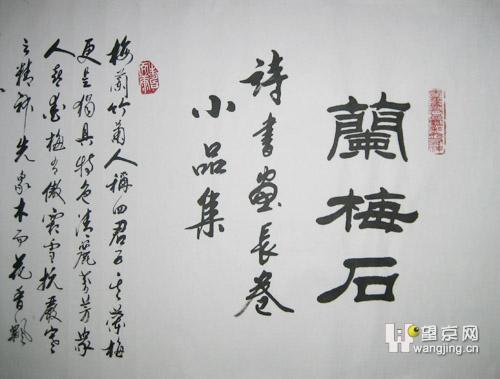 蘭梅石
詩書畫長卷
小品集
梅蘭竹菊人稱四君子其蘭梅
更是獨具特色清麗芬芳衆
人喜愛梅有傲霜雪抗嚴寒
之精神先衆木而花香飄
望京网
wangjing.cn